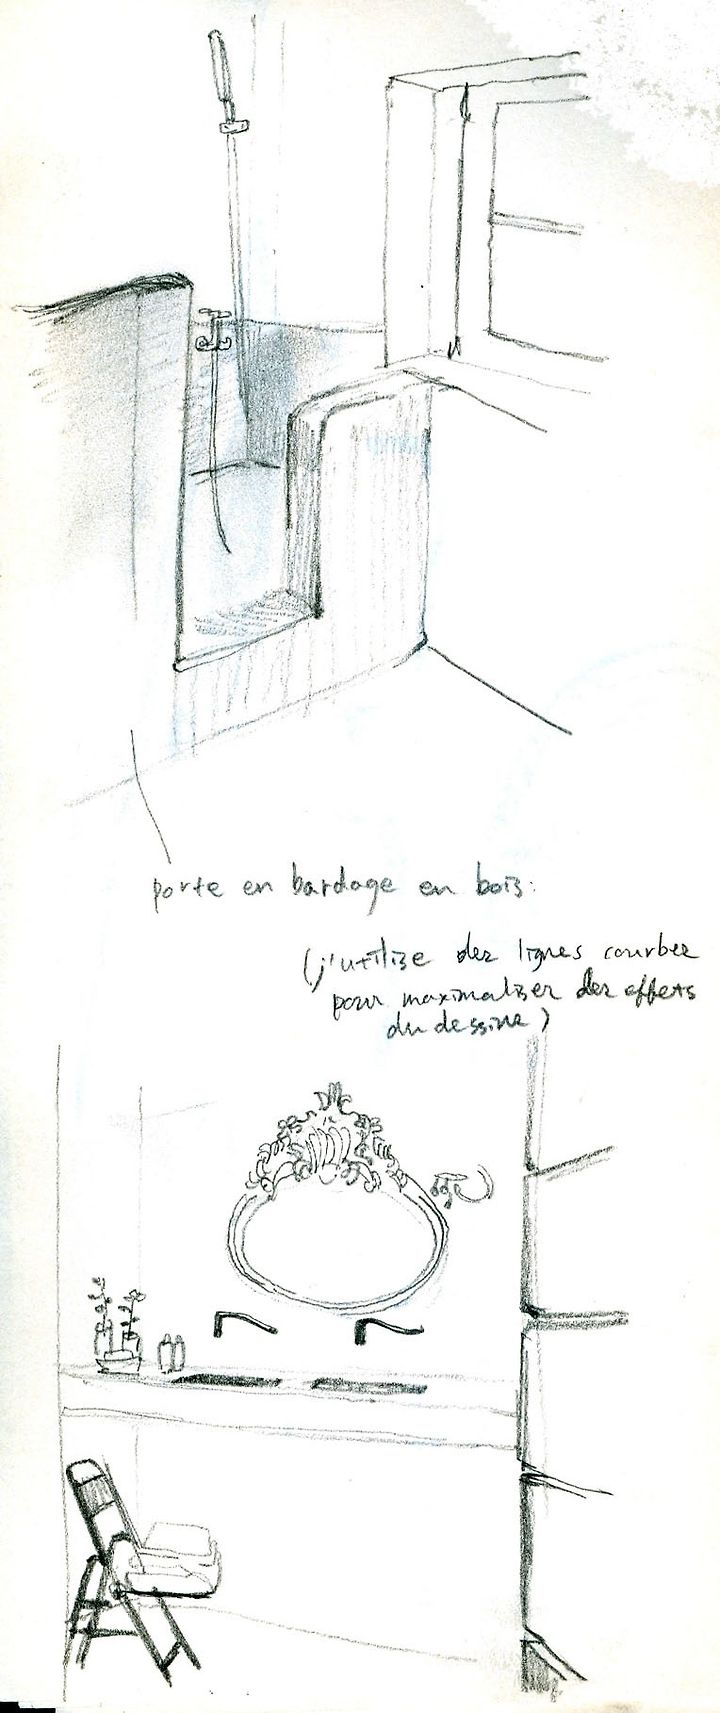 porte en bardage en bois.
(j'utilise des lignes courbes
pour maximaliser des effets
du dessine)